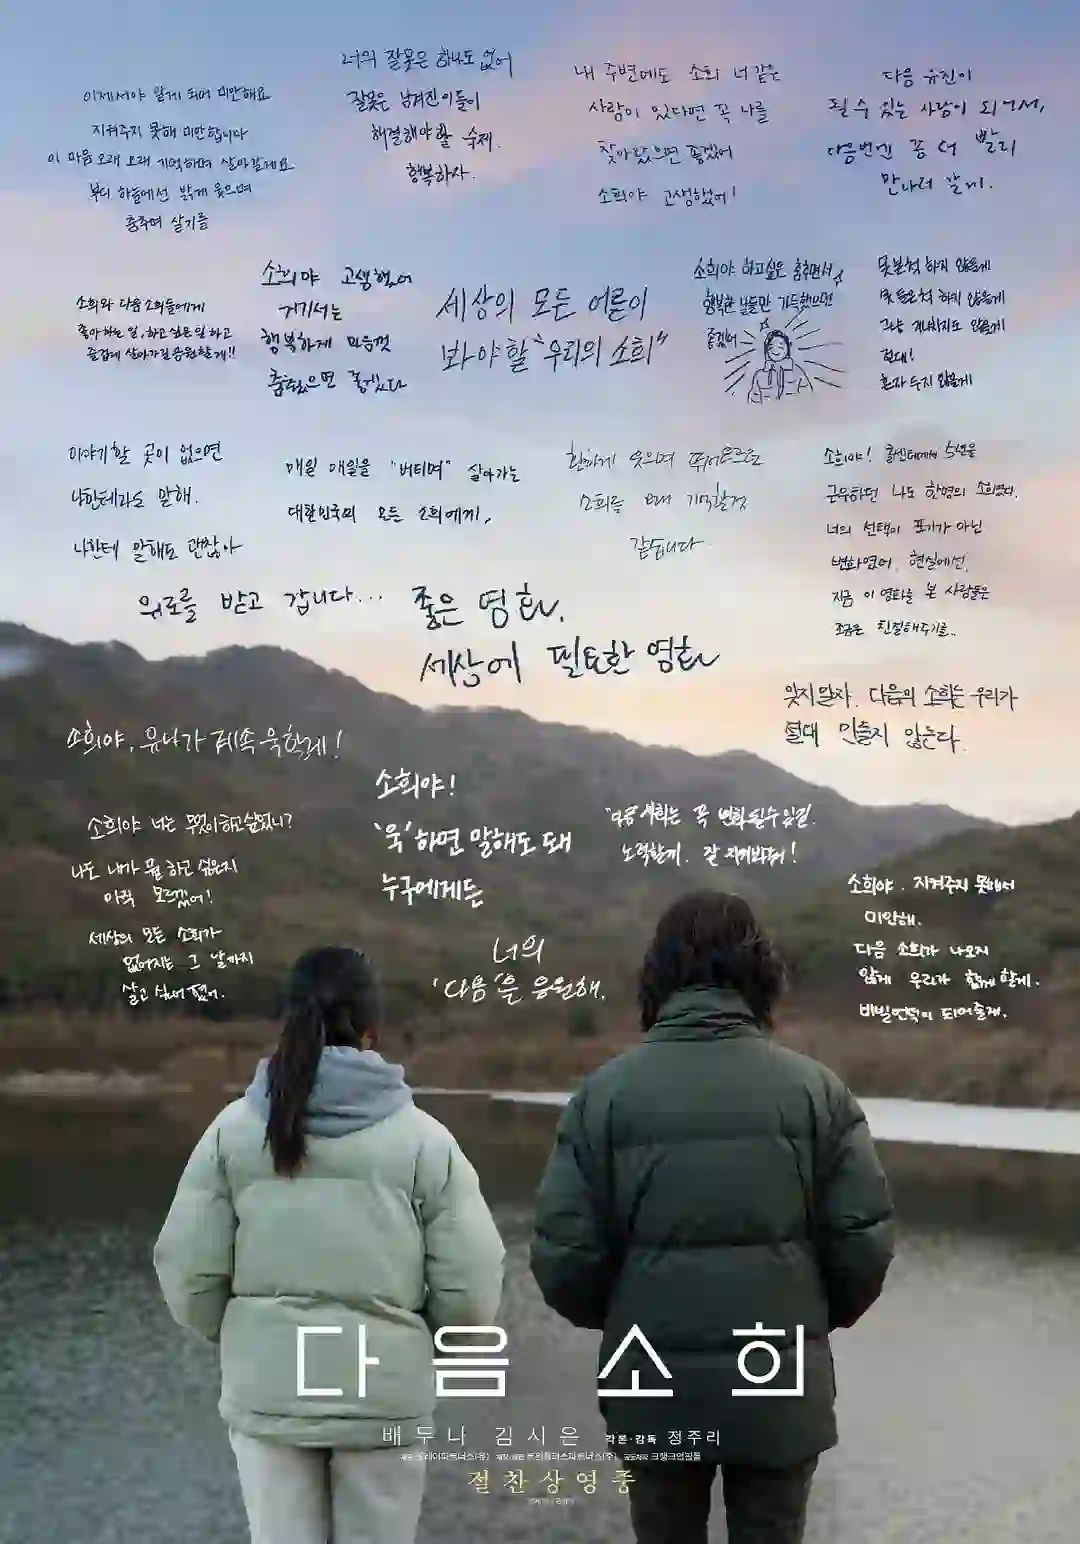 이제서야 알게 되어 미안해요
지켜주지 못해 미안합니다
이 마음 오래 오래 기억하며 살아갈게요
부디 하늘에선 밝게 웃으며
춤추며 살기를
너의 잘못은 하나도 없어
잘못은 남겨진 이들이
해결해야 할 숙제.
행복하자.
내 주변에도 소희 너 같은
사람이 있다면 꼭 나를
찾아왔으면 좋겠어
소희야 고생했어!
다음 유진이
될 수 있는 사람이 되어서,
다음번엔 좀 더 빨리
만나러 갈게.
소희와 다음 소희들에게
좋아하는 일, 하고 싶은 일 하고
즐겁게 살아가길 응원할게!!
소희야 고생했어
거기서는
행복하게 마음껏
춤췄으면 좋겠다
세상의 모든 어른이
봐야할 "우리의 소희"
소희야 하고싶은 춤추면서
행복한 날들만 가득했으면
좋겠어
못본척 하지 않을게
못들은척 하지 않을게
그냥 지나치지도 않을게
절대!
혼자 두지 않을게
이야기할 곳이 없으면
나한테라도 말해.
나한테 말해도 괜찮아
매일 매일을 "버티며" 살아가는
대한민국의 모든 소희에게,
환하게 웃으며 뛰어오르는
소희를 오래 기억할것
같습니다.
소희야! 콜센터에서 5년을
근무하던 나도 한명의 소희였다.
너의 선택이 포기가 아닌
변화였어. 현실에선,
지금 이 영화를 본 사람들은
조금은 친절해주기를..
위로를 받고 갑니다...
좋은 영화,
세상에 필요한 영화
잊지말자. 다음의 소희는 우리가
절대 만들지 않는다.
소희야, 유나가 계속 욱할게!
소희야!
'욱'하면 말해도 돼
누구에게든
소희야 너는 무엇이 하고싶었니?
나도 내가 뭘 하고 싶은지
아직 모르겠어!
세상의 모든 소희가
없어지는 그 날까지
살고 싶어졌어.
다음 사회는 꼭 변화될수있길.
노력할게. 잘 지켜봐줘!
너의
'다음'을 응원해.
소희야. 지켜주지 못해서
미안해.
다음 소희가 나오지
않게 우리가 함께 할게.
비빌언덕이 되어줄게.
다음 소희
배두나 김시은 각본·감독 정주리
절찬상영중